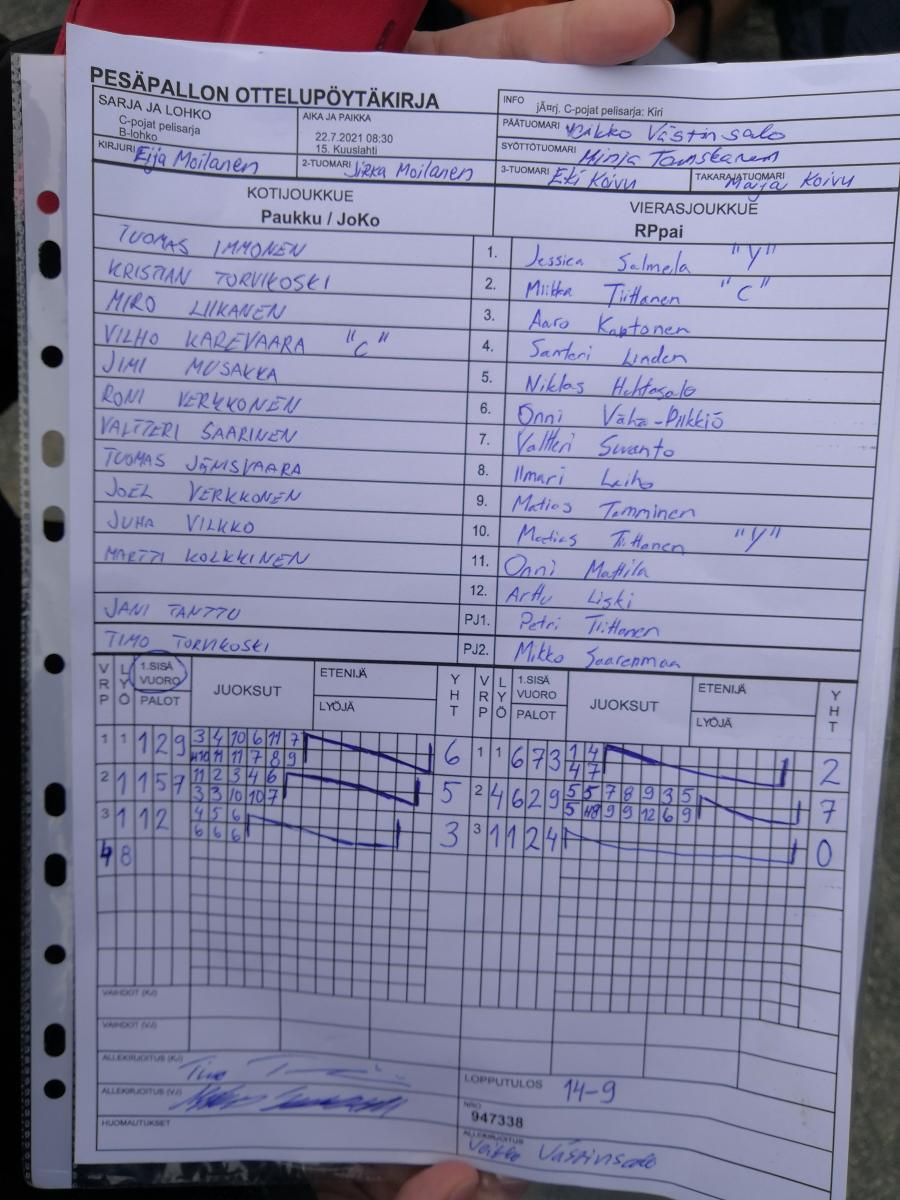 PESÄPALLON OTTELUPÖYTÄKIRJA
SARJA JA LOHKO
C-pojat pelisarja
B-lohko
AIKA JA PAIKKA
22.7.2021 08:30
15. Kuuslahti
INFO
jÃ¤rj. C-pojat pelisarja: Kiri
PÄÄTUOMARI Veikko Västinsalo
SYÖTTÖTUOMARI Minja Tanskanen
KIRJURI Eija Moilanen
2-TUOMARI Jirka Moilanen
3-TUOMARI Eki Koivu
TAKARAJATUOMARI Maija Koivu
KOTIJOUKKUE
Paukku / JoKo
VIERASJOUKKUE
RPpai
TUOMAS IMMONEN 1. Jessica Salmela "Y"
KRISTIAN TORVIKOSKI 2. Miikka Tiittanen "C"
MIRO LIIKANEN 3. Aaro Kaptonen
VILHO KAREVAARA "C" 4. Santeri Linden
JIMI MUSAKKA 5. Niklas Huhtasalo
RONI VERKKONEN 6. Onni Vähä-Piikkiö
VALTTERI SAARINEN 7. Valtteri Suvanto
TUOMAS JÄNISVAARA 8. Ilmari Laiho
JOEL VERKKONEN 9. Matias Tamminen
JUHA VILKKO 10. Matias Tiittanen "Y"
MARTTI KOLKKINEN 11. Onni Mattila
12. Arttu Liski
JANI TANTTU PJ1. Petri Tiittanen
TIMO TORVIKOSKI PJ2. Mikko Saarenmaa
VRP LYÖ 1.SISÄ VUORO PALOT JUOKSUT ETENIJÄ LYÖJÄ YHT VRP LYÖ 1.SISÄ VUORO PALOT JUOKSUT ETENIJÄ LYÖJÄ YHT
1 1 1 2 9 3 4 10 6 11 7 6 1 1 6 7 3 1 4 2
10 11 11 7 8 9 4 7
2 1 1 5 7 11 2 3 4 6 5 2 4 6 2 9 5 5 7 8 9 3 5 7
3 3 10 10 7 5 8 9 9 12 6 9
3 1 1 2 4 5 6 3 3 1 1 2 4 0
6 6 6
4 8
VAIHDOT (KJ)
VAIHDOT (VJ)
ALLEKIRJOITUS (KJ)
ALLEKIRJOITUS (VJ)
HUOMAUTUKSET
LOPPUTULOS 14-9
NRO
947338
ALLEKIRJOITUS
Veikko Västinsalo